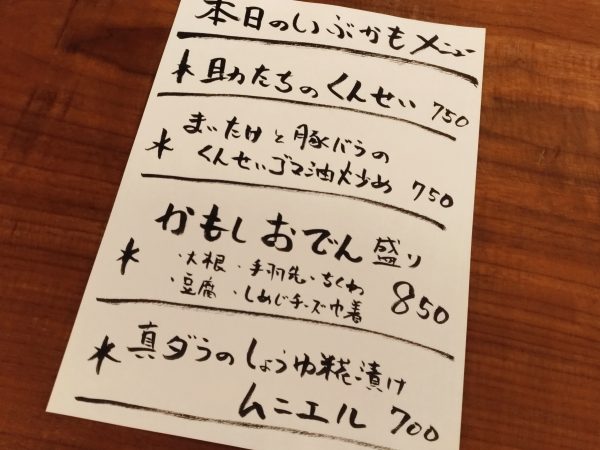 本日のいぶかもメニュー
* 助たちのくんせい 750
* まいたけと豚バラの
くんせいゴマ油炒め 750
* かもしおでん盛り
・大根・手羽先・ちくわ
・豆腐・しめじチーズ巾着 850
* 真ダラのしょうゆ糀漬け
ムニエル 700